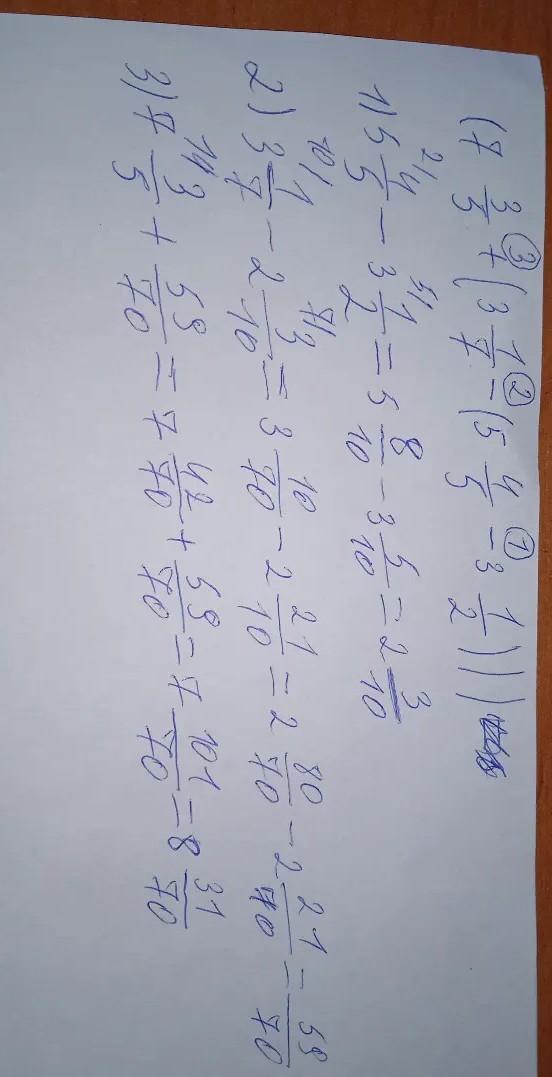 (7 3/5 +③ (3 1/7 -② (5 4/5 -① 3 1/2)))
1) 5 4/5 - 3 1/2 = 5 8/10 - 3 5/10 = 2 3/10
2) 3 1/7 - 2 3/10 = 3 10/70 - 2 21/10 = 2 80/70 - 2 21/70 = 59/70
3) 7 3/5 + 59/70 = 7 42/70 + 59/70 = 7 101/70 = 8 31/70